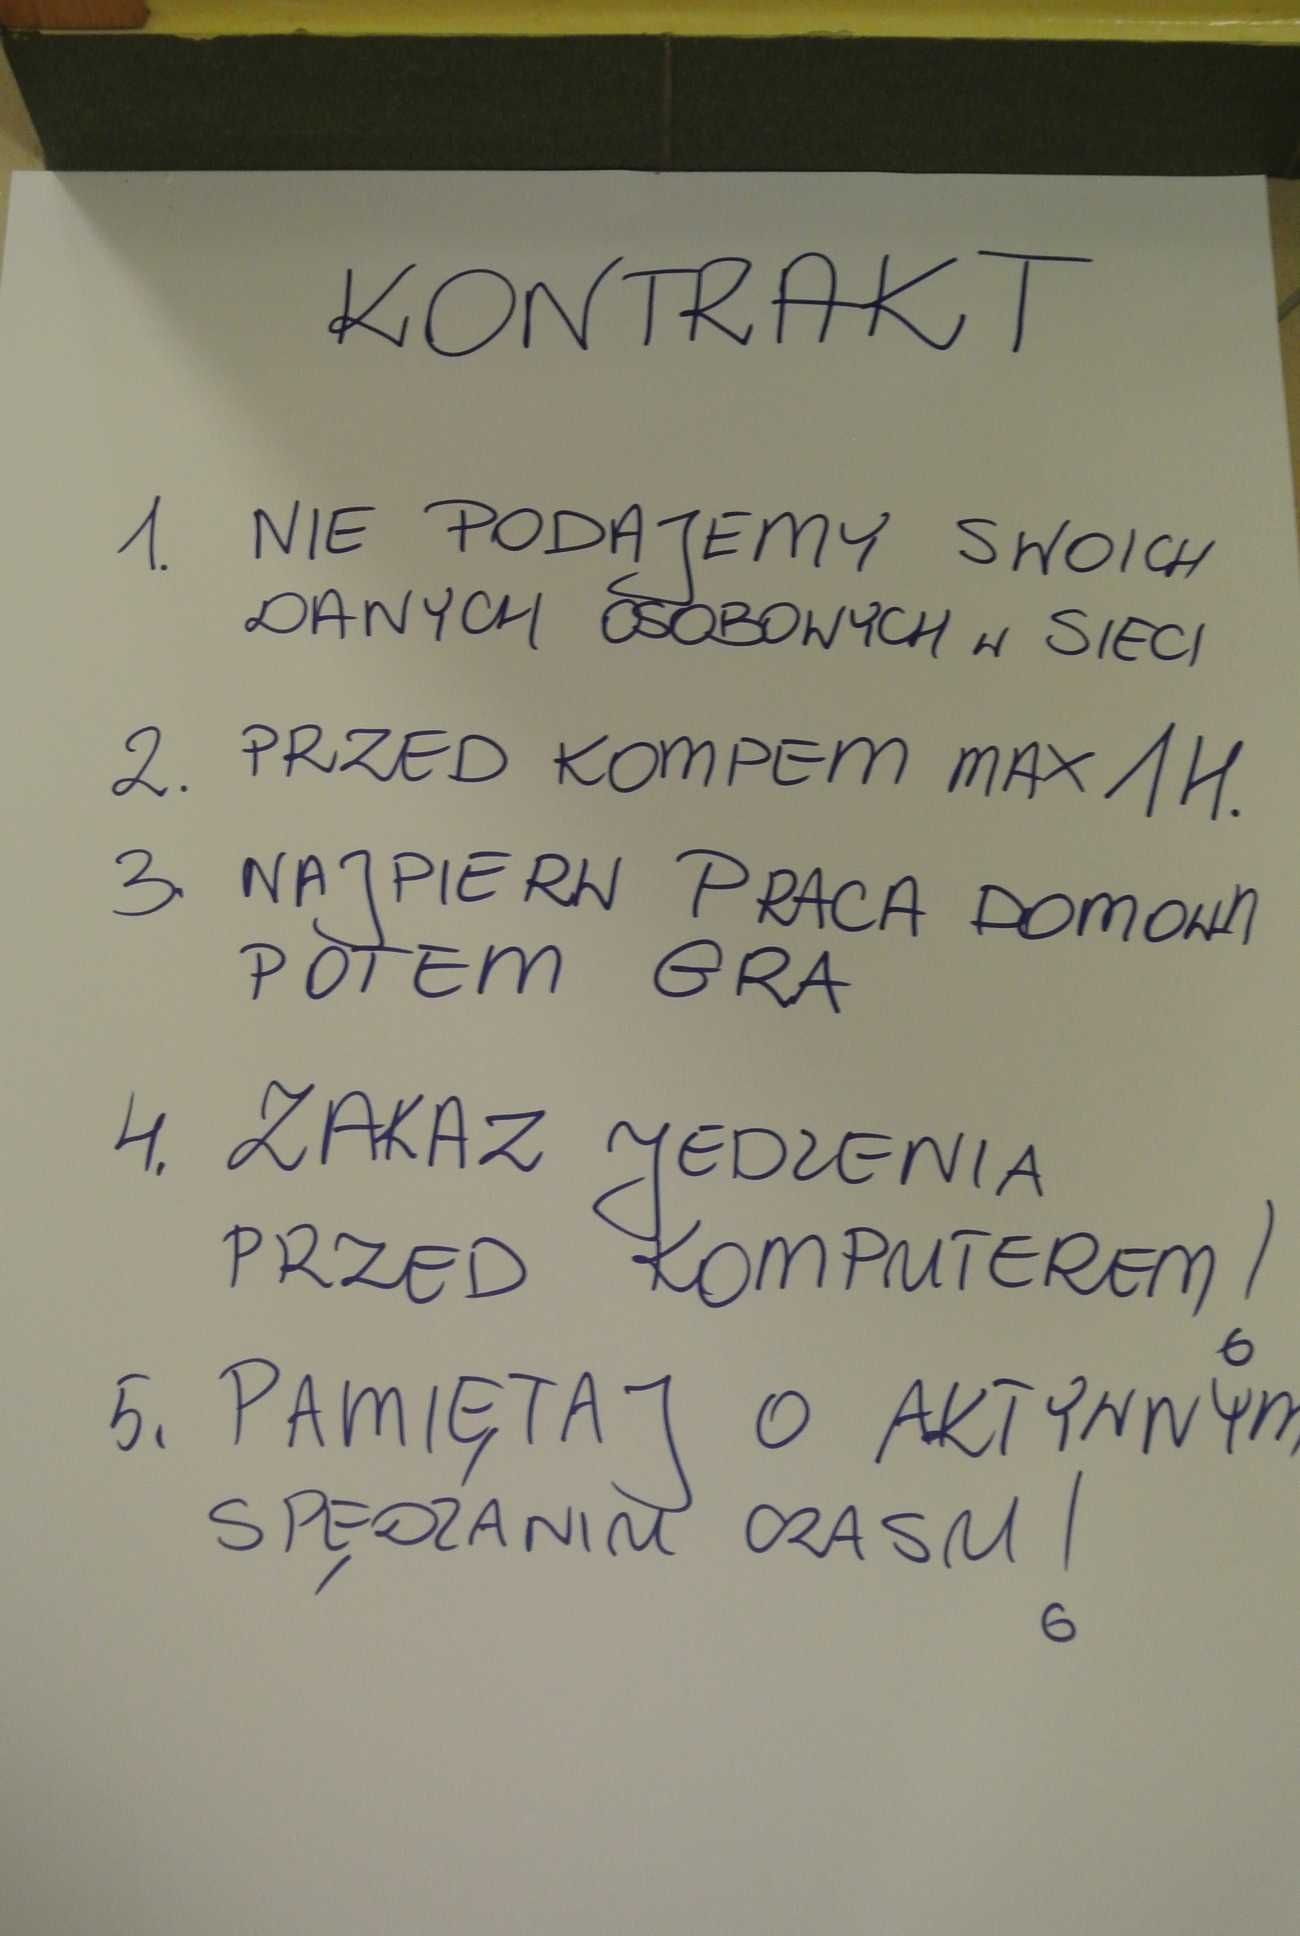 KONTRAKT
1. NIE PODAJEMY SWOICH
DANYCH OSOBOWYCH W SIECI
2. PRZED KOMPEM MAX 1H.
3. NAJPIERW PRACA DOMOWA
POTEM GRA
4. ZAKAZ JEDZENIA
PRZED KOMPUTEREM!
5. PAMIĘTAJ O AKTYWNYM
SPĘDZANIU CZASU!